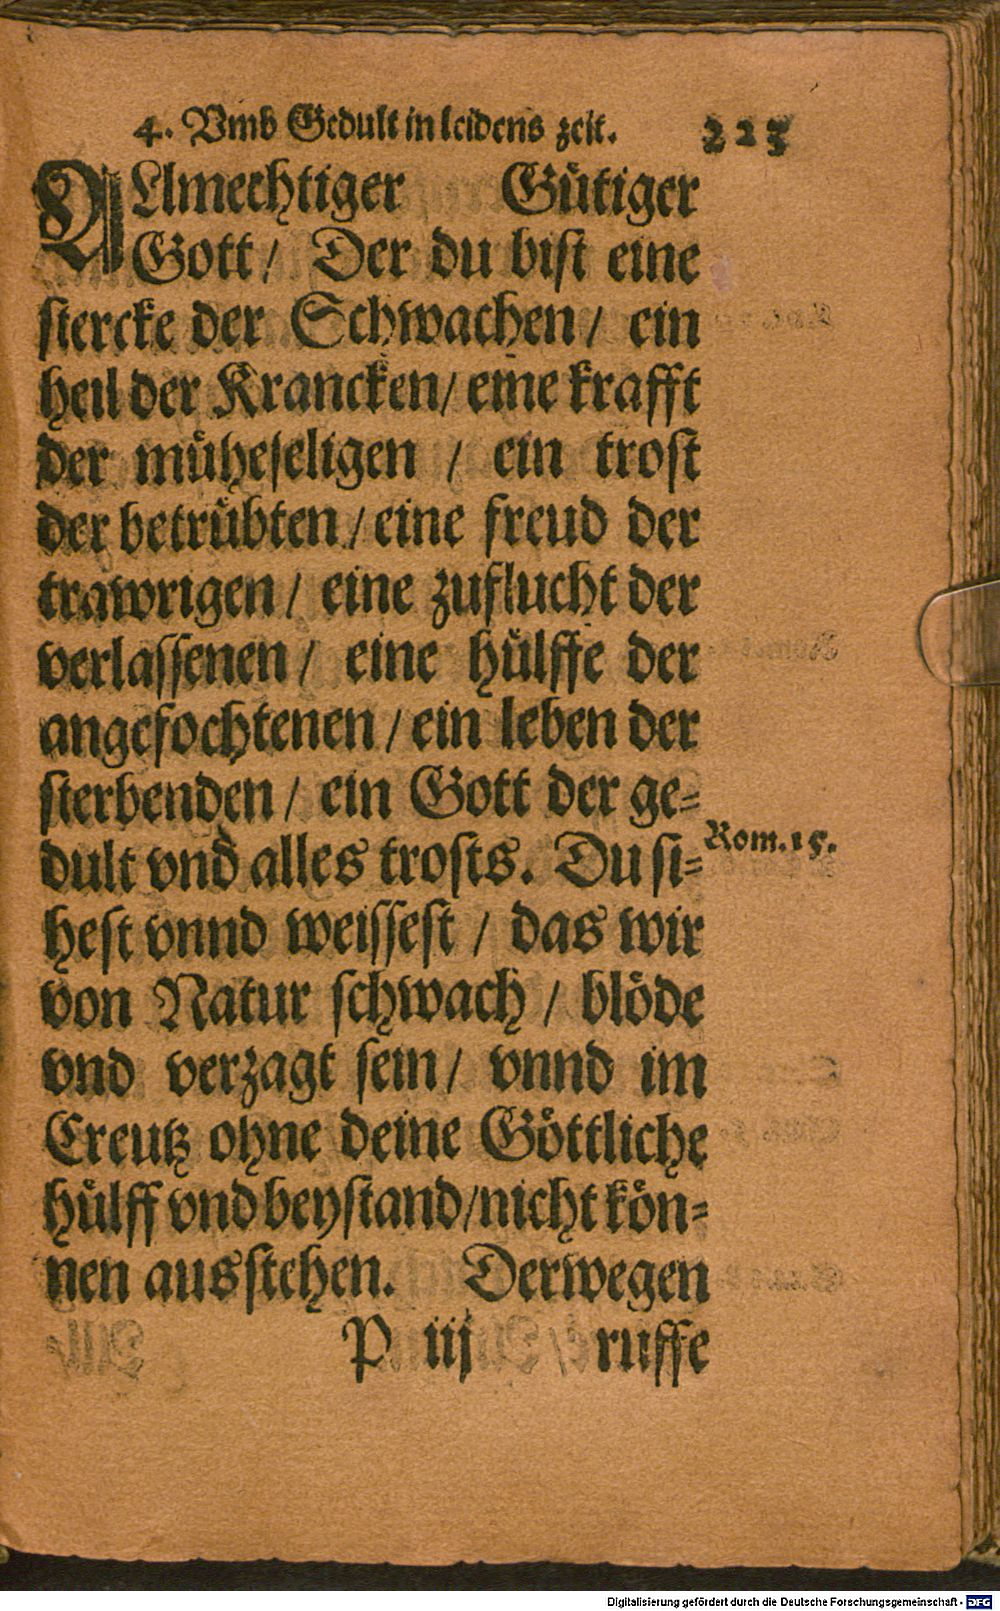 4. Vmb Gedult in leidens zeit. 225
ALlmechtiger Gütiger
Gott / Der du bist eine
stercke der Schwachen / ein
heil der Krancken / eine krafft
der müheseligen / ein trost
der betrübten / eine freud der
trawrigen / eine zuflucht der
verlassenen / eine hülffe der
angefochtenen / ein leben der
sterbenden / ein Gott der ge-
dult vnd alles trosts. Du si-
Rom. 15.
hest vnnd weissest / das wir
von Natur schwach / blöde
vnd verzagt sein / vnnd im
Creutz ohne deine Göttliche
hülff vnd beystand / nicht kön-
nen ausstehen. Derwegen
P iij ruffe
Digitalisierung gefördert durch die Deutsche Forschungsgemeinschaft - DFG